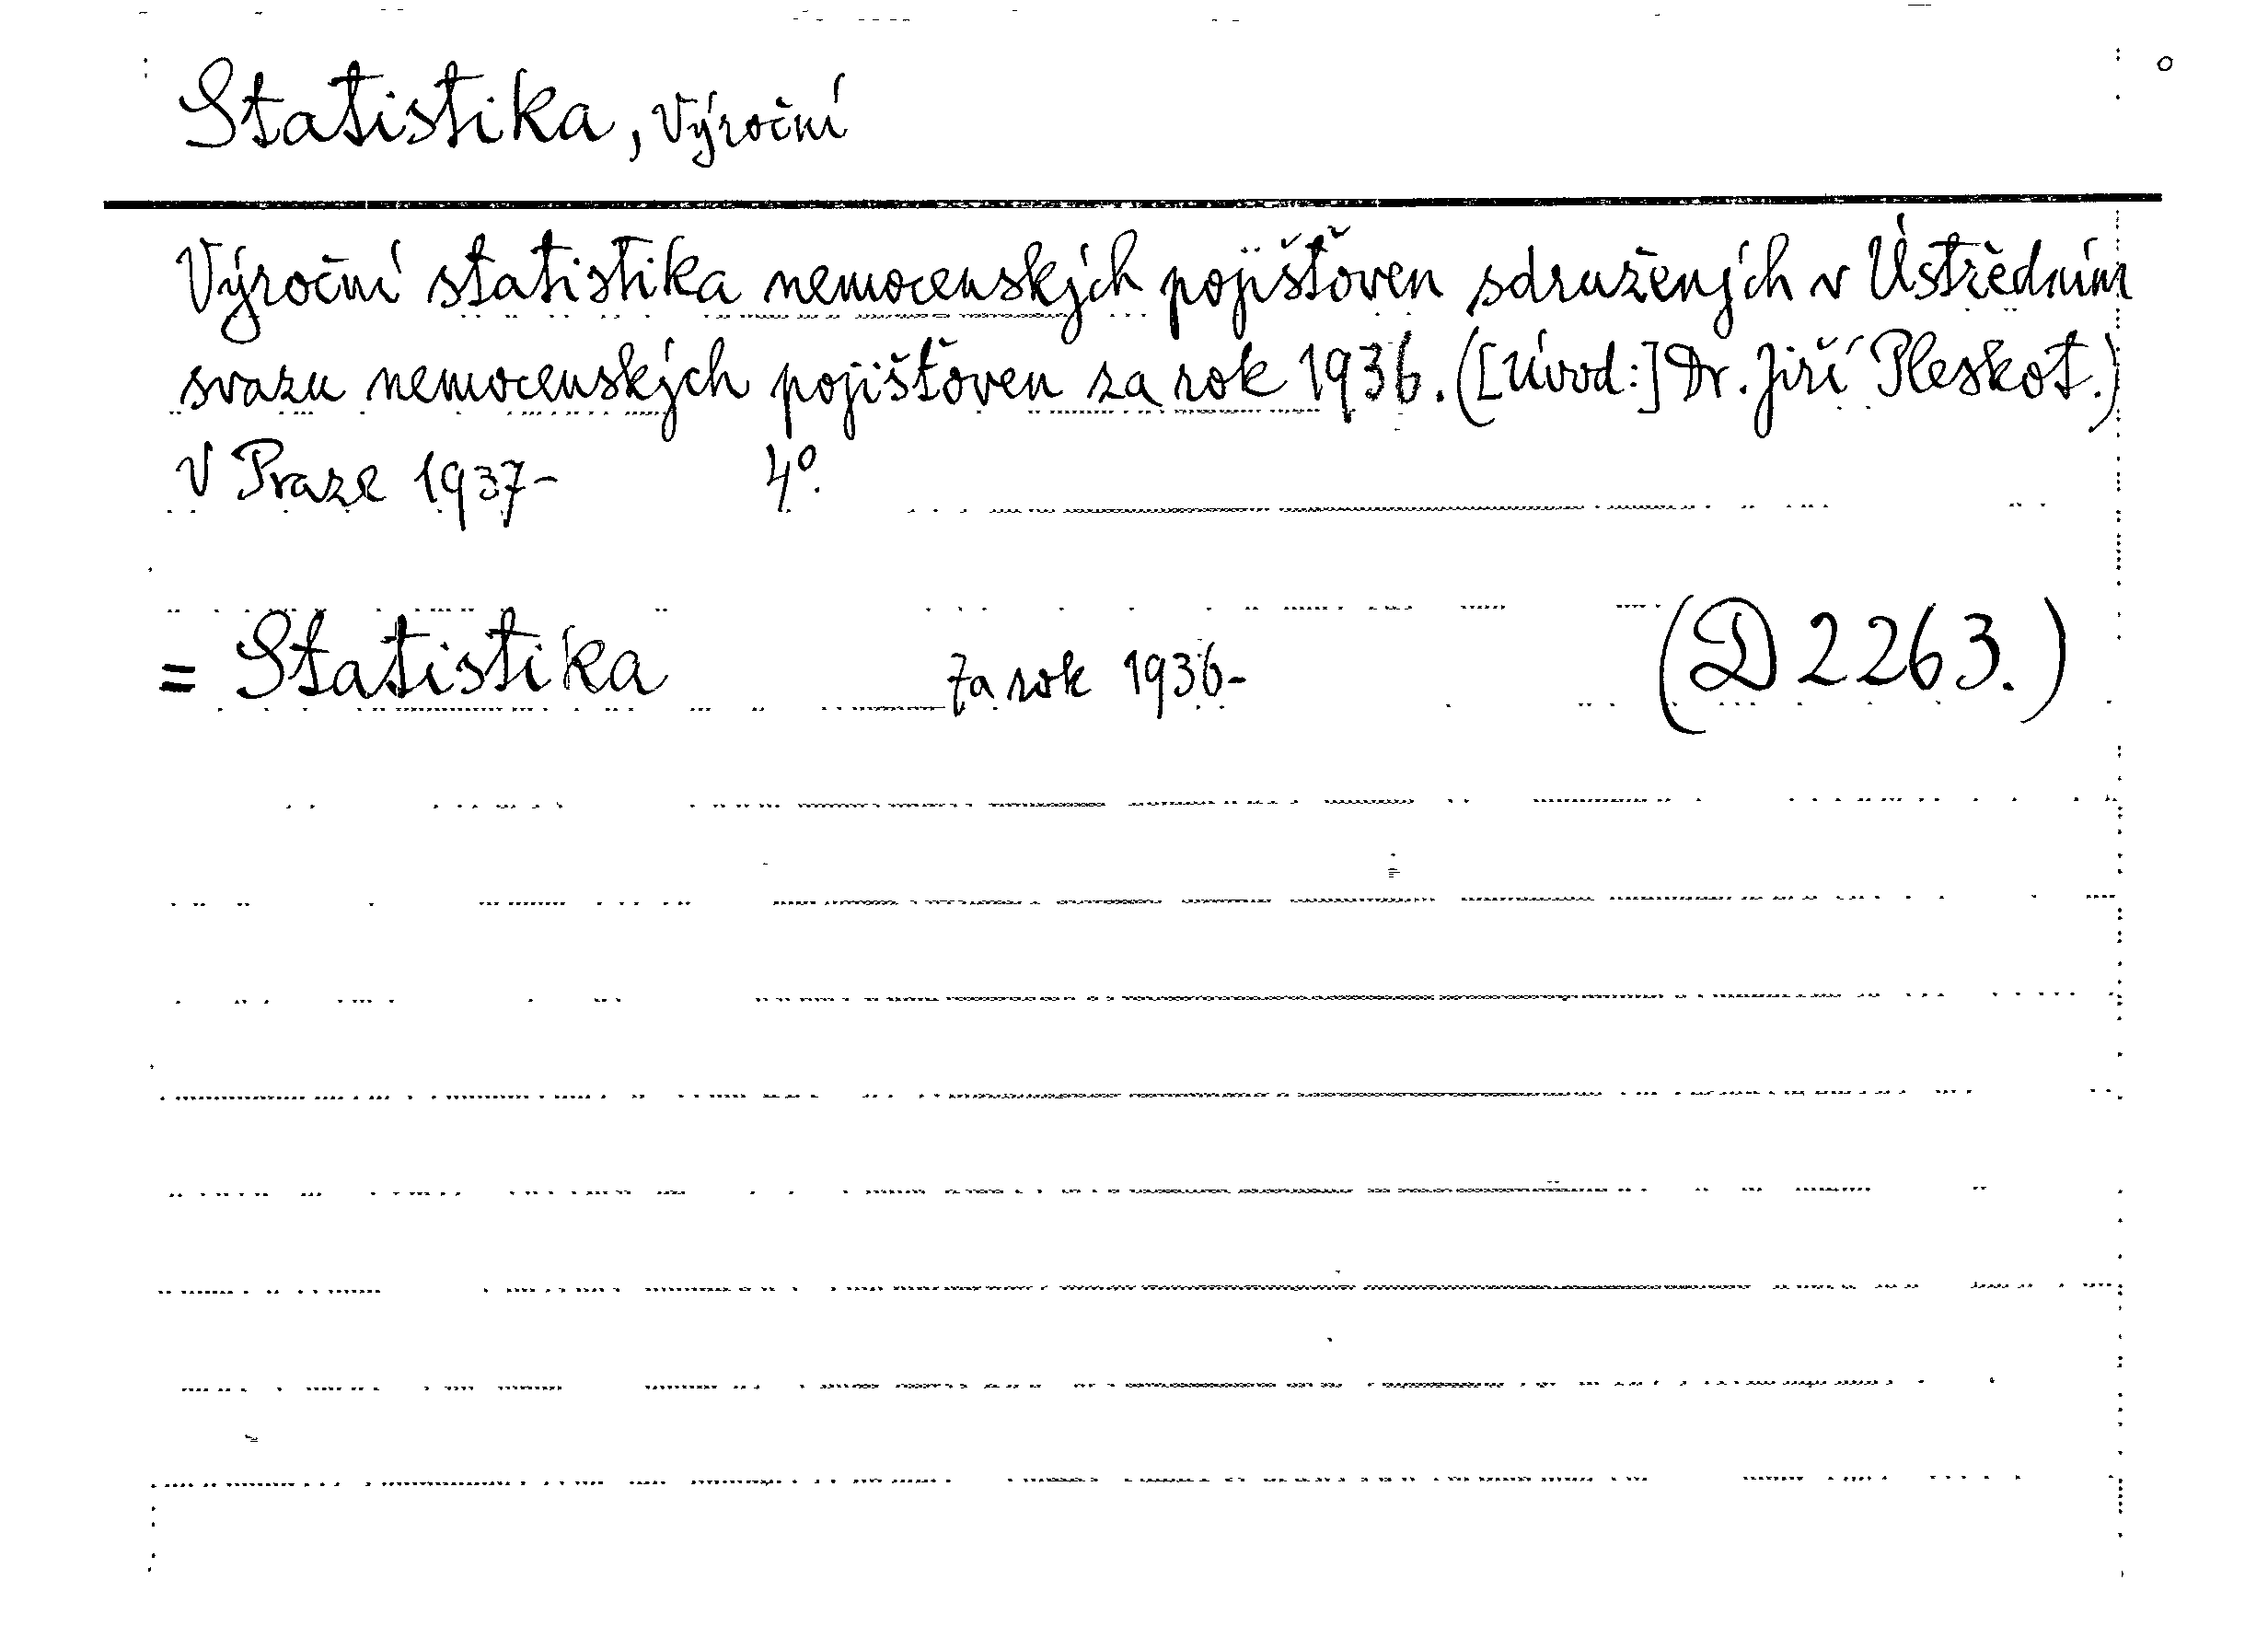 Statistika, Výroční
Výroční statistika nemocenských pojišťoven sdružených v Ústředním
svazu nemocenských pojišťoven za rok 1936. ([Úvod:] Dr. Jiří Pleskot.)
V Praze 1937- 4º.
= Statistika za rok 1936- (D 2263.)